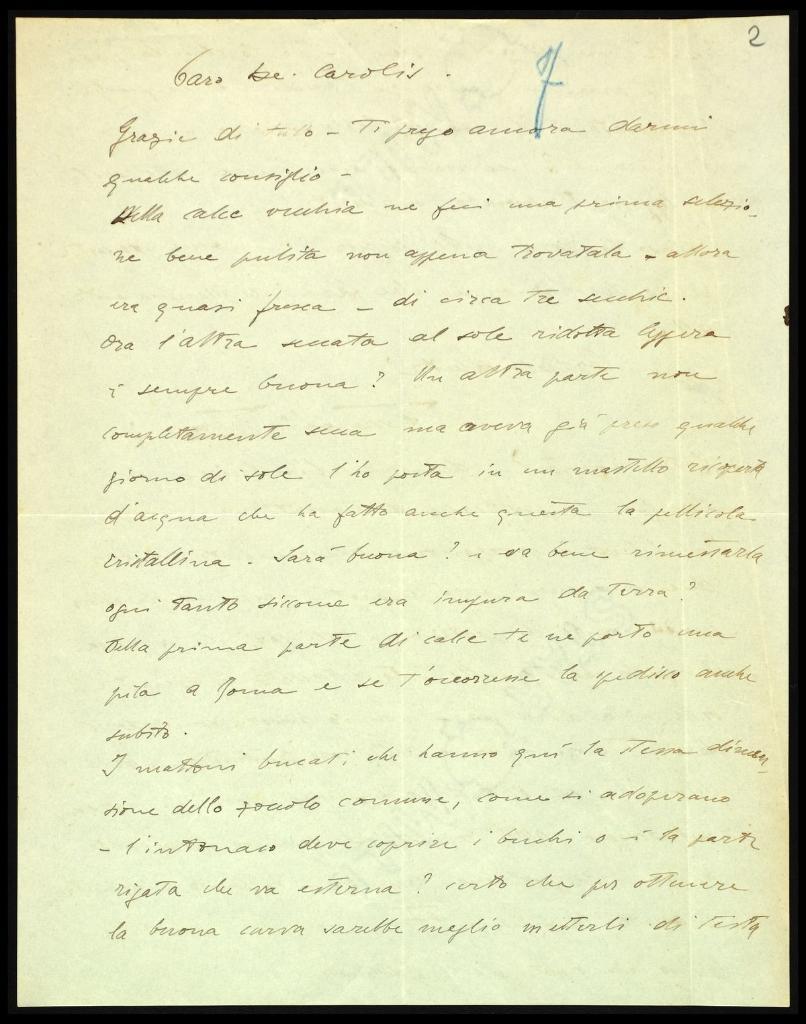 2
7
Caro De Carolis.
Grazie di tutto - Ti prego ancora darmi
qualche consiglio -
Della calce vecchia ne feci una prima selezio-
ne bene pulita non appena trovatala - allora
era quasi fresca - di circa tre secchie.
Ora l'altra seccata al sole ridotta
è sempre buona? Un altra parte non
completamente secca ma aveva già preso qualche
giorno di sole l'ho posta in un mastello ricoperta
d'acqua che ha fatto anche questa la pellicola
cristallina. Sarà buona? e va bene rimestarla
ogni tanto siccome era impura da terra?
Della prima parte di calce te ne porto una
pila a Roma e se t'occorresse la spedisco anche
subito.
I mattoni bucati che hanno quì la stessa dimen-
sione dello zoccolo comune, come si adoperano
- l'intonaco deve coprire i buchi o è la parte
rigata che va esterna? certo che per ottenere
la buona curva sarebbe meglio metterli di testa